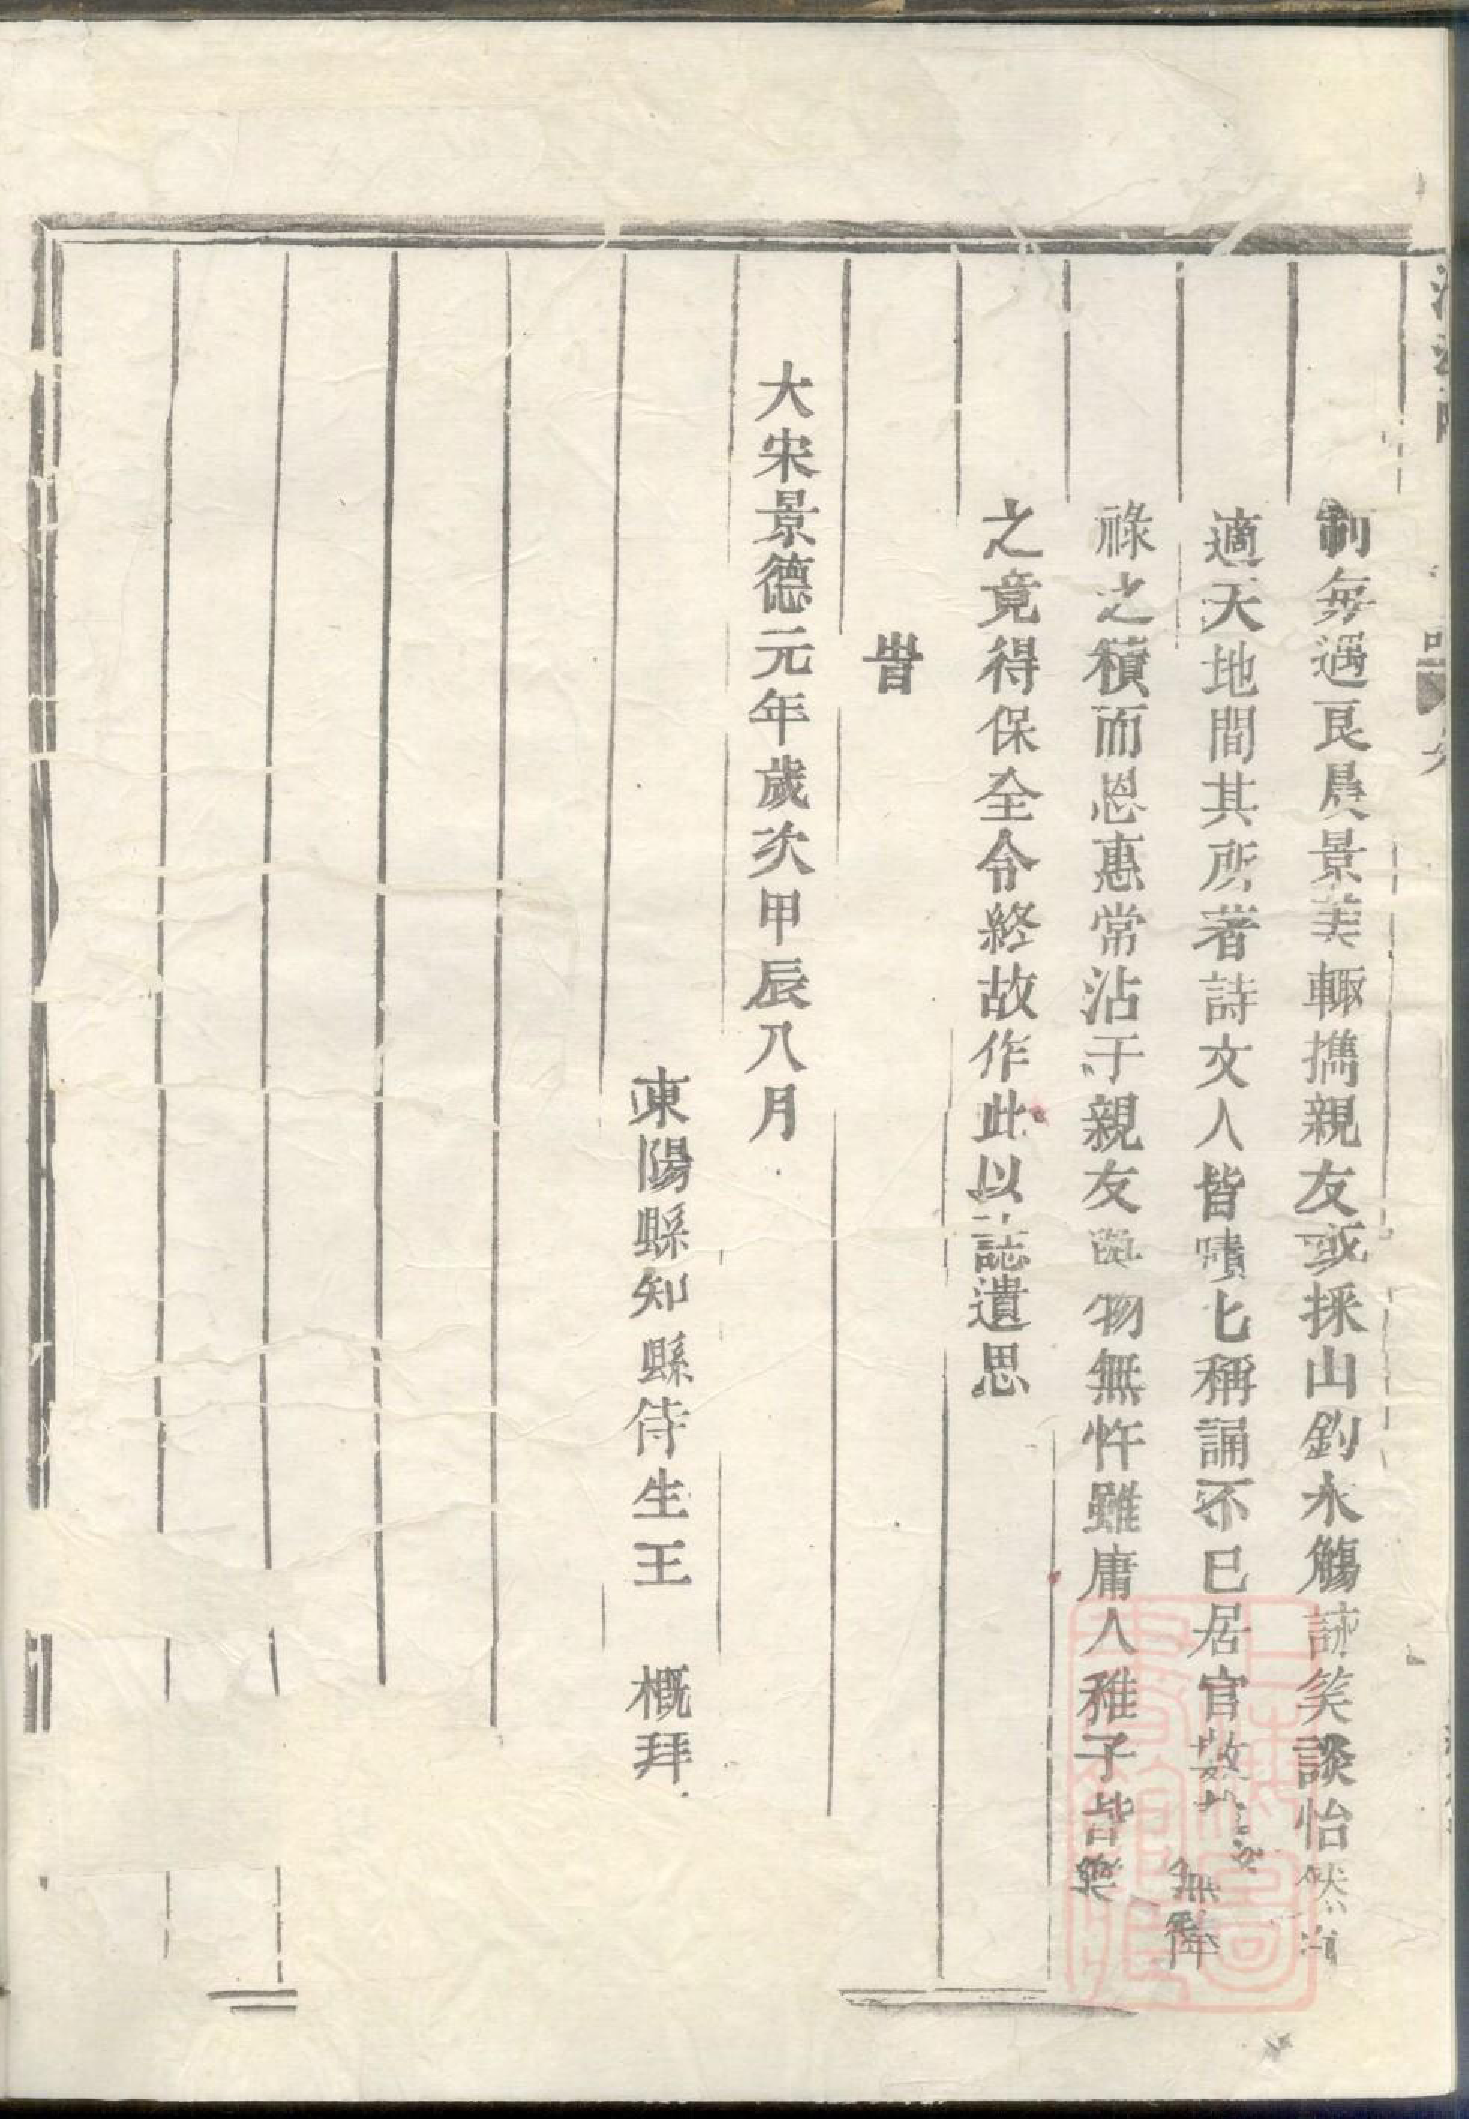 制每遇良晨景美輙擕親友或採山釣水觴詠笑談怡然
適天地間其所著詩文人皆嘖匕稱誦不已居官數 無俸
祿之積而恩惠常沾于親友與物無忤雖庸人稚子皆樂
之竟得保全令終故作此以誌遺思
旹
大宋景德元年歲次甲辰八月
東陽縣知縣侍生王 概拜